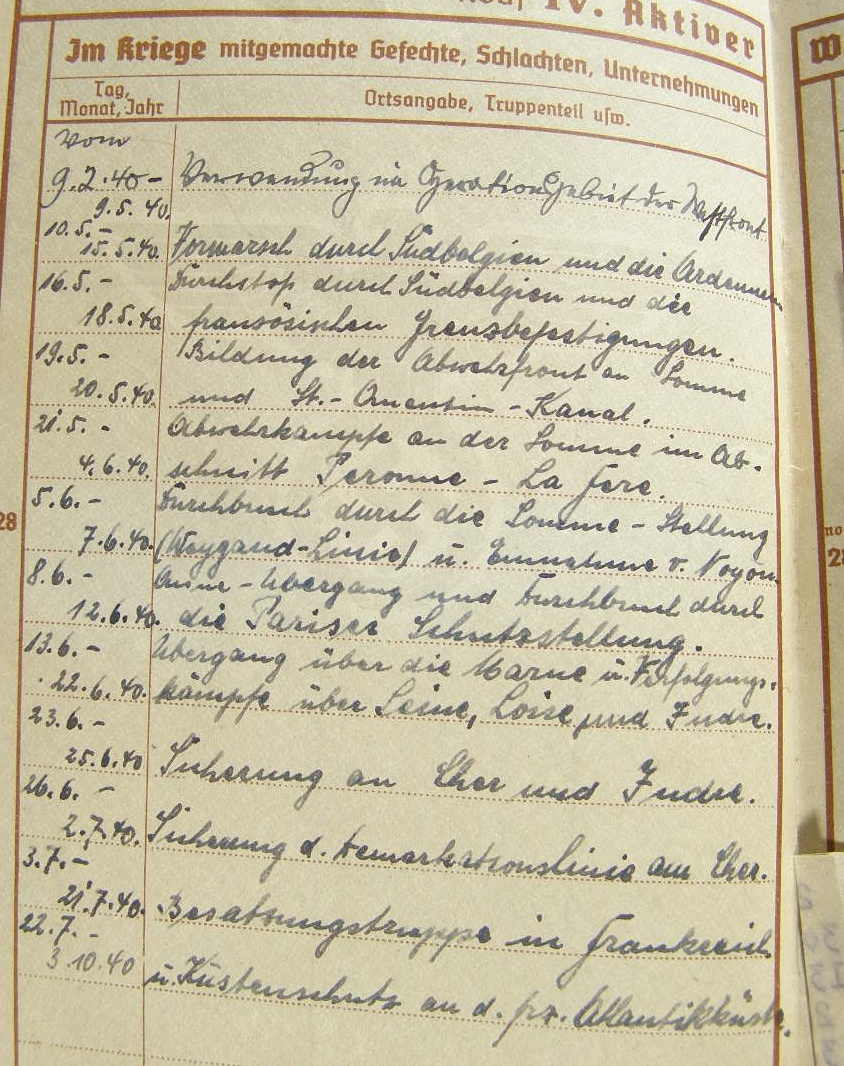 IV. Aktiver
Im Kriege mitgemachte Gefechte, Schlachten, Unternehmungen
Tag, Monat, Jahr
Ortsangabe, Truppenteil usw.
Vom
9.2.40 – Verwendung im Operationsgebiet der Westfront
9.5.40.
10.5.–
15.5.40. Vormarsch durch Südbelgien und die Ardennen
16.5.– Durchstoß durch Südbelgien und die
18.5.40 französischen Grenzbefestigungen.
19.5.– Bildung der Abwehrfront an Somme
20.5.40. und St.-Quentin-Kanal.
21.5.– Abwehrkämpfe an der Somme im Ab-
4.6.40. schnitt Peronne – La Fere.
5.6.– Durchbruch durch die Somme-Stellung
7.6.40. (Weygand-Linie) u. Einnahme v. Noyon
8.6.– Aisne-Übergang und Durchbruch durch
12.6.40. die Pariser Schutzstellung.
13.6.– Übergang über die Marne u. Verfolgungs-
22.6.40. kämpfe über Seine, Loire und Indre.
23.6.–
25.6.40 Sicherung an Cher und Indre.
26.6.–
2.7.40. Sicherung d. Demarkationslinie am Cher.
3.7.–
21.7.40. Besatzungstruppe in Frankreich
22.7.–
3.10.40 u. Küstenschutz an d. frz. Atlantikküste.
28
W
28